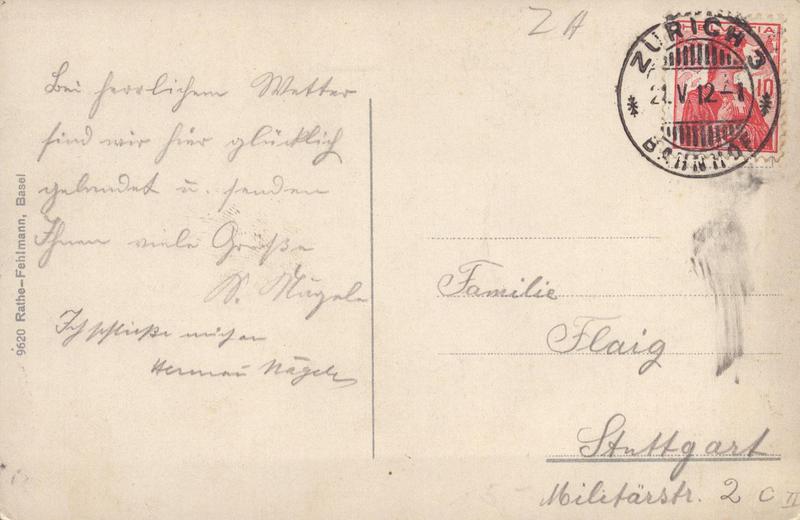 Z A
ZÜRICH 3
21.V.12-1
BAHNHOF
HELVETIA
10
Bei herrlichem Wetter
sind wir hier glücklich
gelandet u. senden
Ihnen viele Grüße
Nägele
Ich schließe mich an
Hermann Nägele
9620 Rathe-Fehlmann, Basel
Familie
Flaig
Stuttgart
Militärstr. 2 c II